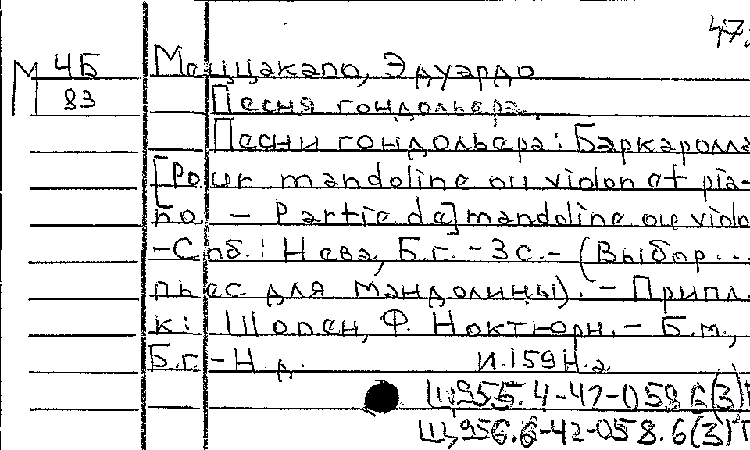 47
М 4Б Маццакапо, Эдуардо
83 Песня гондольера.
Песни гондольера: Баркаролла
[Pour mandoline ou violon et pia-
no. – Partie de] mandoline ou violo
-Спб.: Нева, Б.г. - 3 с. - (Выбор...
пьес для мандолины). - Припл.
к: Шопен, Ф. Ноктюрн. - Б.м.,
Б.г. - Н.д. И.159Н.2
Ц955.4-42-058.6(3)
Ц956.6-42-058.6(3)